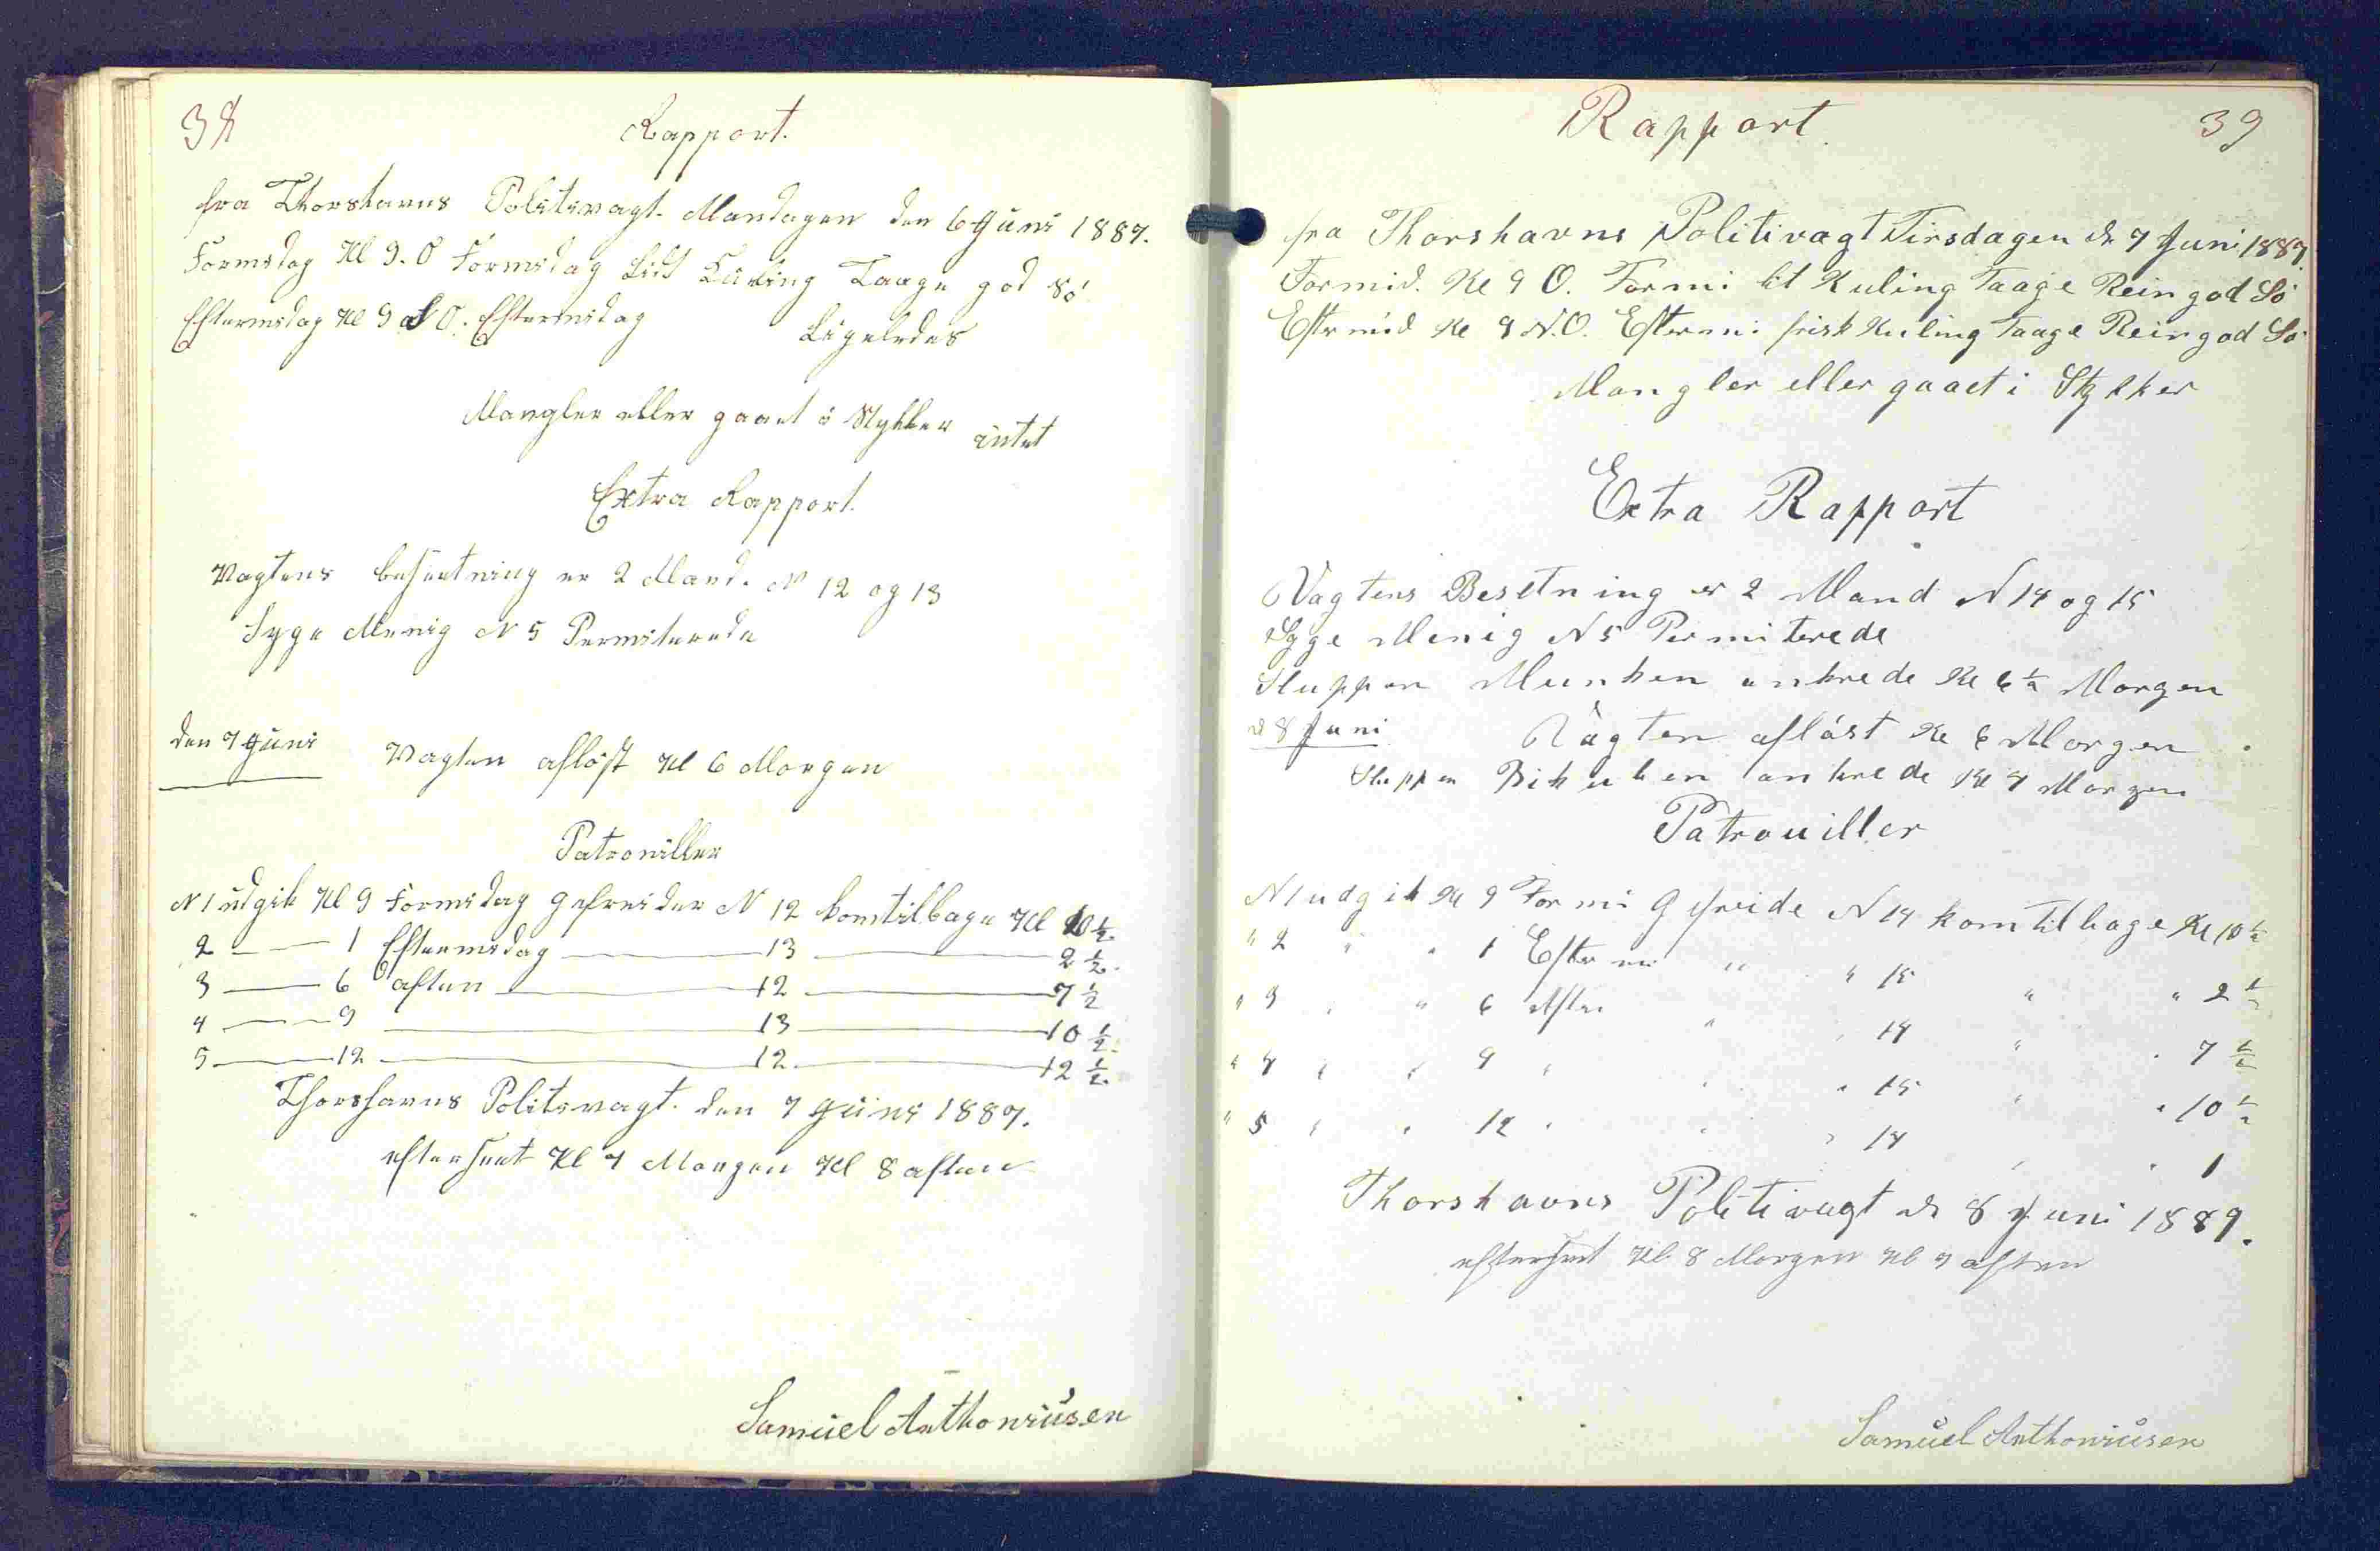 38
Rapport.
fra Thorshavns Politivagt. Mandagen den 6 Juni 1887.
Formidag Kl 9. O Formidag Lidt Kuling Taage god Sö
Eftermidag Kl 9 O. Eftermidag Ligeledes
Mangler eller gaaet i Stykker intet
Extra Rapport.
Vagtens besætning er 2 Mand. N 12 og 13
Syge Menig N 5 Permiterede
den 7 Juni Vagten aflöst Kl 6 Morgen
Patroviller
N 1 udgik Kl 9 Formidag Gefreider N 12 kom tilbage Kl 10 1/2
2 — 1 Eftermidag — 13 — 2 1/2.
3 — 6 aften — 12 — 7 1/2
4 — 9 — 13 — 10 1/2.
5 — 12 — 12 — 12 1/2.
Thorshavns Politivagt. den 7 Juni 1887.
efterseet Kl 7 Morgen Kl 8 aften
Samuel Anthoniusen
Rapport
39
fra Thorshavns Politivagt Tirsdagen d 7 Juni 1887.
Formid. Kl 9 O. Formi lit Kuling Taage Rein god Sö
Eftrmid Kl 9 N.O. Eftermi frisk Kuling Taage Rein god Sö
Mangler eller gaaet i Stykker
Extra Rapport
Vagtens Besetning er 2 Mand N 14 og 15
Syge Menig N 5 Permiterede
Sluppen Munken ankrede Kl 6 1/2 Morgen
d 8 Juni Vagten aflöst Kl 6 Morgen
Sluppen Bikuben ankrede Kl 4 Morgen
Patrouiller
N 1 udgik Kl 9 Formi Gefreide N 14 kom tilbage Kl 10 1/2
" 2 " " 1 Efter mi " " 15 " " 2 1/2
" 3 " " 6 Aften " " 14 " " 7 1/2
" 4 " " 9 " " " 15 " " 10 1/2
" 5 " " 12 " " " 14 " " 1
Thorshavns Politivagt d 8 Juni 1887.
efterseet Kl. 8 Morgen Kl 9 aften
Samuel Anthoniusen